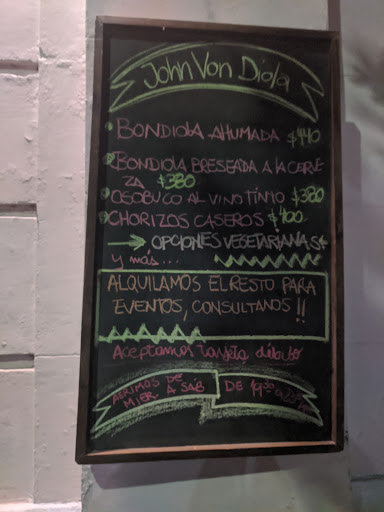 John Von Diola
• BONDIOLA AHUMADA $440
• BONDIOLA BRESEADA A LA CERVE
ZA $380
• OSOBUCO AL VINO TINTO $380
• CHORIZOS CASEROS $400
→ OPCIONES VEGETARIANAS
y más...
ALQUILAMOS EL RESTO PARA
EVENTOS, CONSULTANOS !!
Aceptamos tarjeta débito
ABRIMOS DE
MIER A SÁB DE